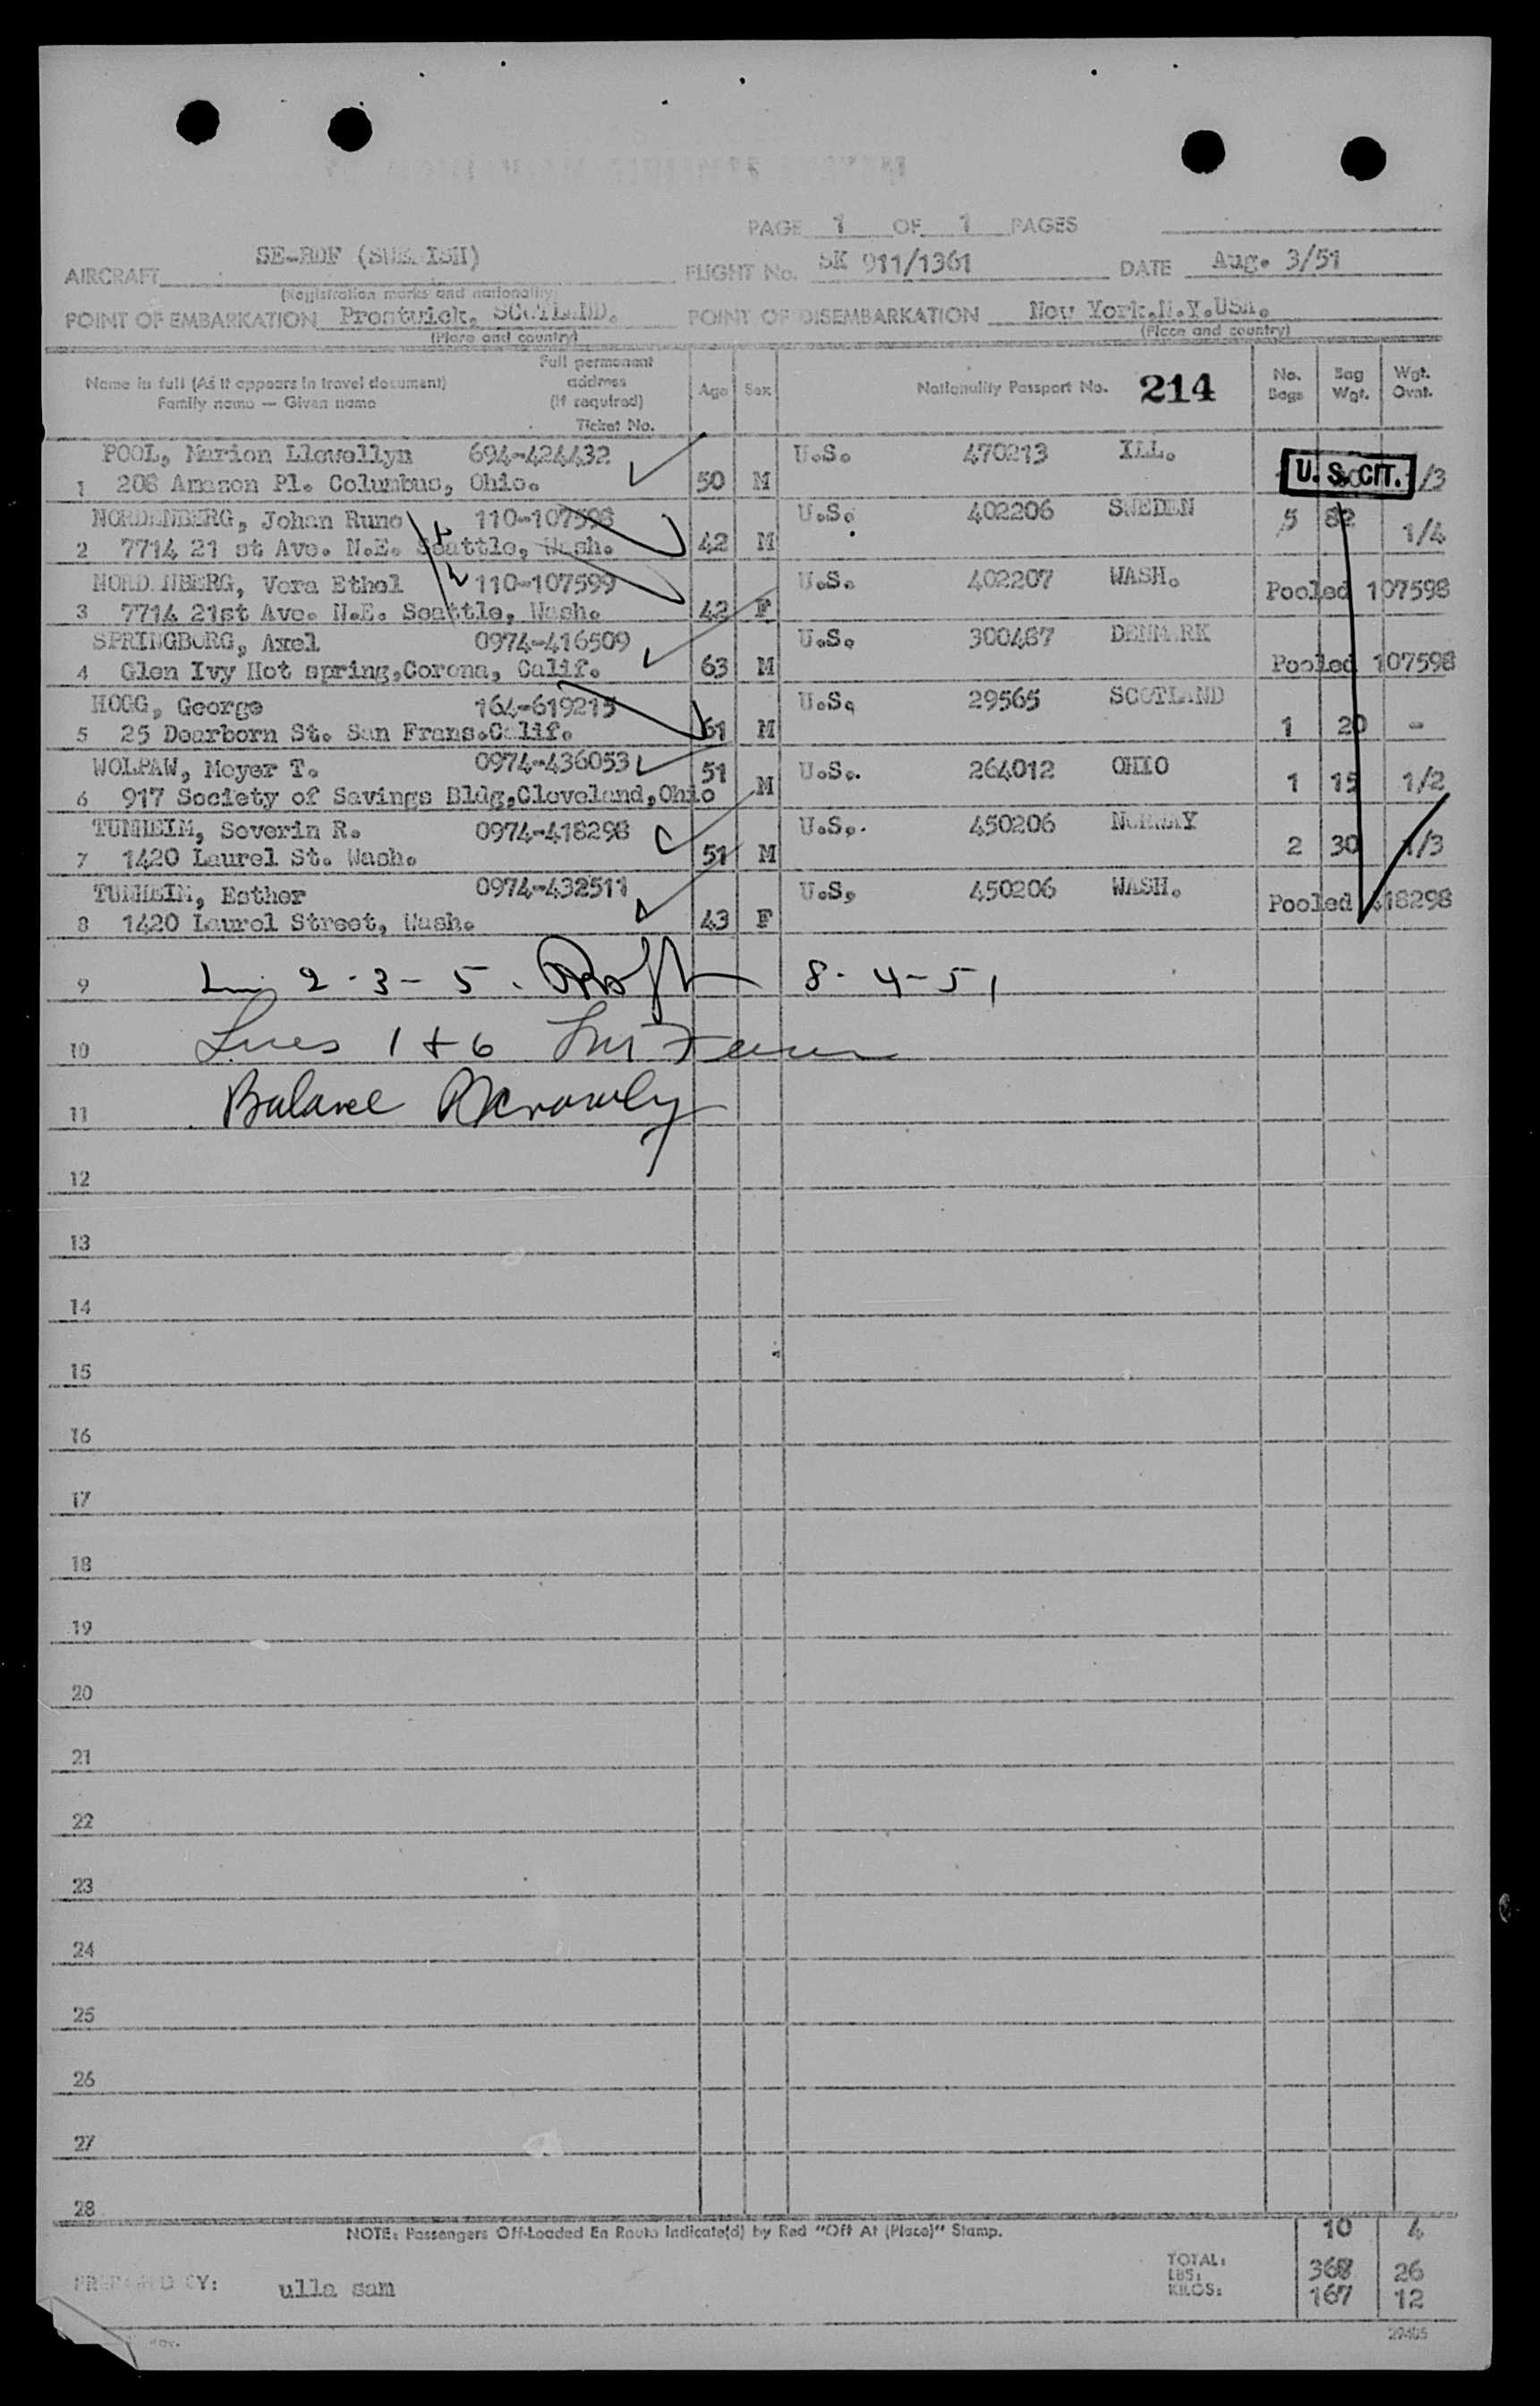 PAGE 1 OF 1 PAGES
AIRCRAFT SE-BDF (SWEDISH) FLIGHT No. SK 911/1361 DATE Aug. 3/51
(Registration marks and nationality)
POINT OF EMBARKATION Prestwick, SCOTLAND. POINT OF DISEMBARKATION New York.N.Y.USA.
(Place and country) (Place and country)
Name in full (As it appears in travel document) Family name — Given name Full permanent address (if required) Ticket No. Age Sex Nationality Passport No. 214 No. Bags Bag Wgt. Wgt. Ovnt.
POOL, Marion Llewellyn 694-424432 U.S. 470213 ILL.
1 208 Amazon Pl. Columbus, Ohio. 50 M U. S. CIT. /3
NORDENBERG, Johan Rune 110-107598 U.S. 402206 SWEDEN 5 82
2 7714 21 st Ave. N.E. Seattle, Wash. 42 M 1/4
NORDENBERG, Vera Ethel 110-107599 U.S. 402207 WASH. Pooled 107598
3 7714 21st Ave. N.E. Seattle, Wash. 42 F
SPRINGBORG, Axel 0974-416509 U.S. 300487 DENMARK
4 Glen Ivy Hot spring,Corona, Calif. 63 M Pooled 107598
HOGG, George 164-619215 U.S. 29565 SCOTLAND
5 25 Dearborn St. San Frans.Calif. 61 M 1 20 -
WOLPAW, Meyer T. 0974-436053 51 U.S.. 264012 OHIO
6 917 Society of Savings Bldg,Cleveland,Ohio M 1 15 1/2
TUNHEIM, Severin R. 0974-418298 U.S.. 450206 NORWAY
7 1420 Laurel St. Wash. 51 M 2 30 1/3
TUNHEIM, Esther 0974-432511 U.S. 450206 WASH. Pooled 418298
8 1420 Laurel Street, Wash. 43 F
9 2-3-5. 8-4-51
10 Lines 1 + 6
11 Balance
12
13
14
15
16
17
18
19
20
21
22
23
24
25
26
27
28
NOTE: Passengers Off-Loaded En Route Indicate(d) by Red "Off At (Place)" Stamp.
10 4
TOTAL:
LBS: 368 26
PREPARED BY: ulla sam KILOS: 167 12
29405